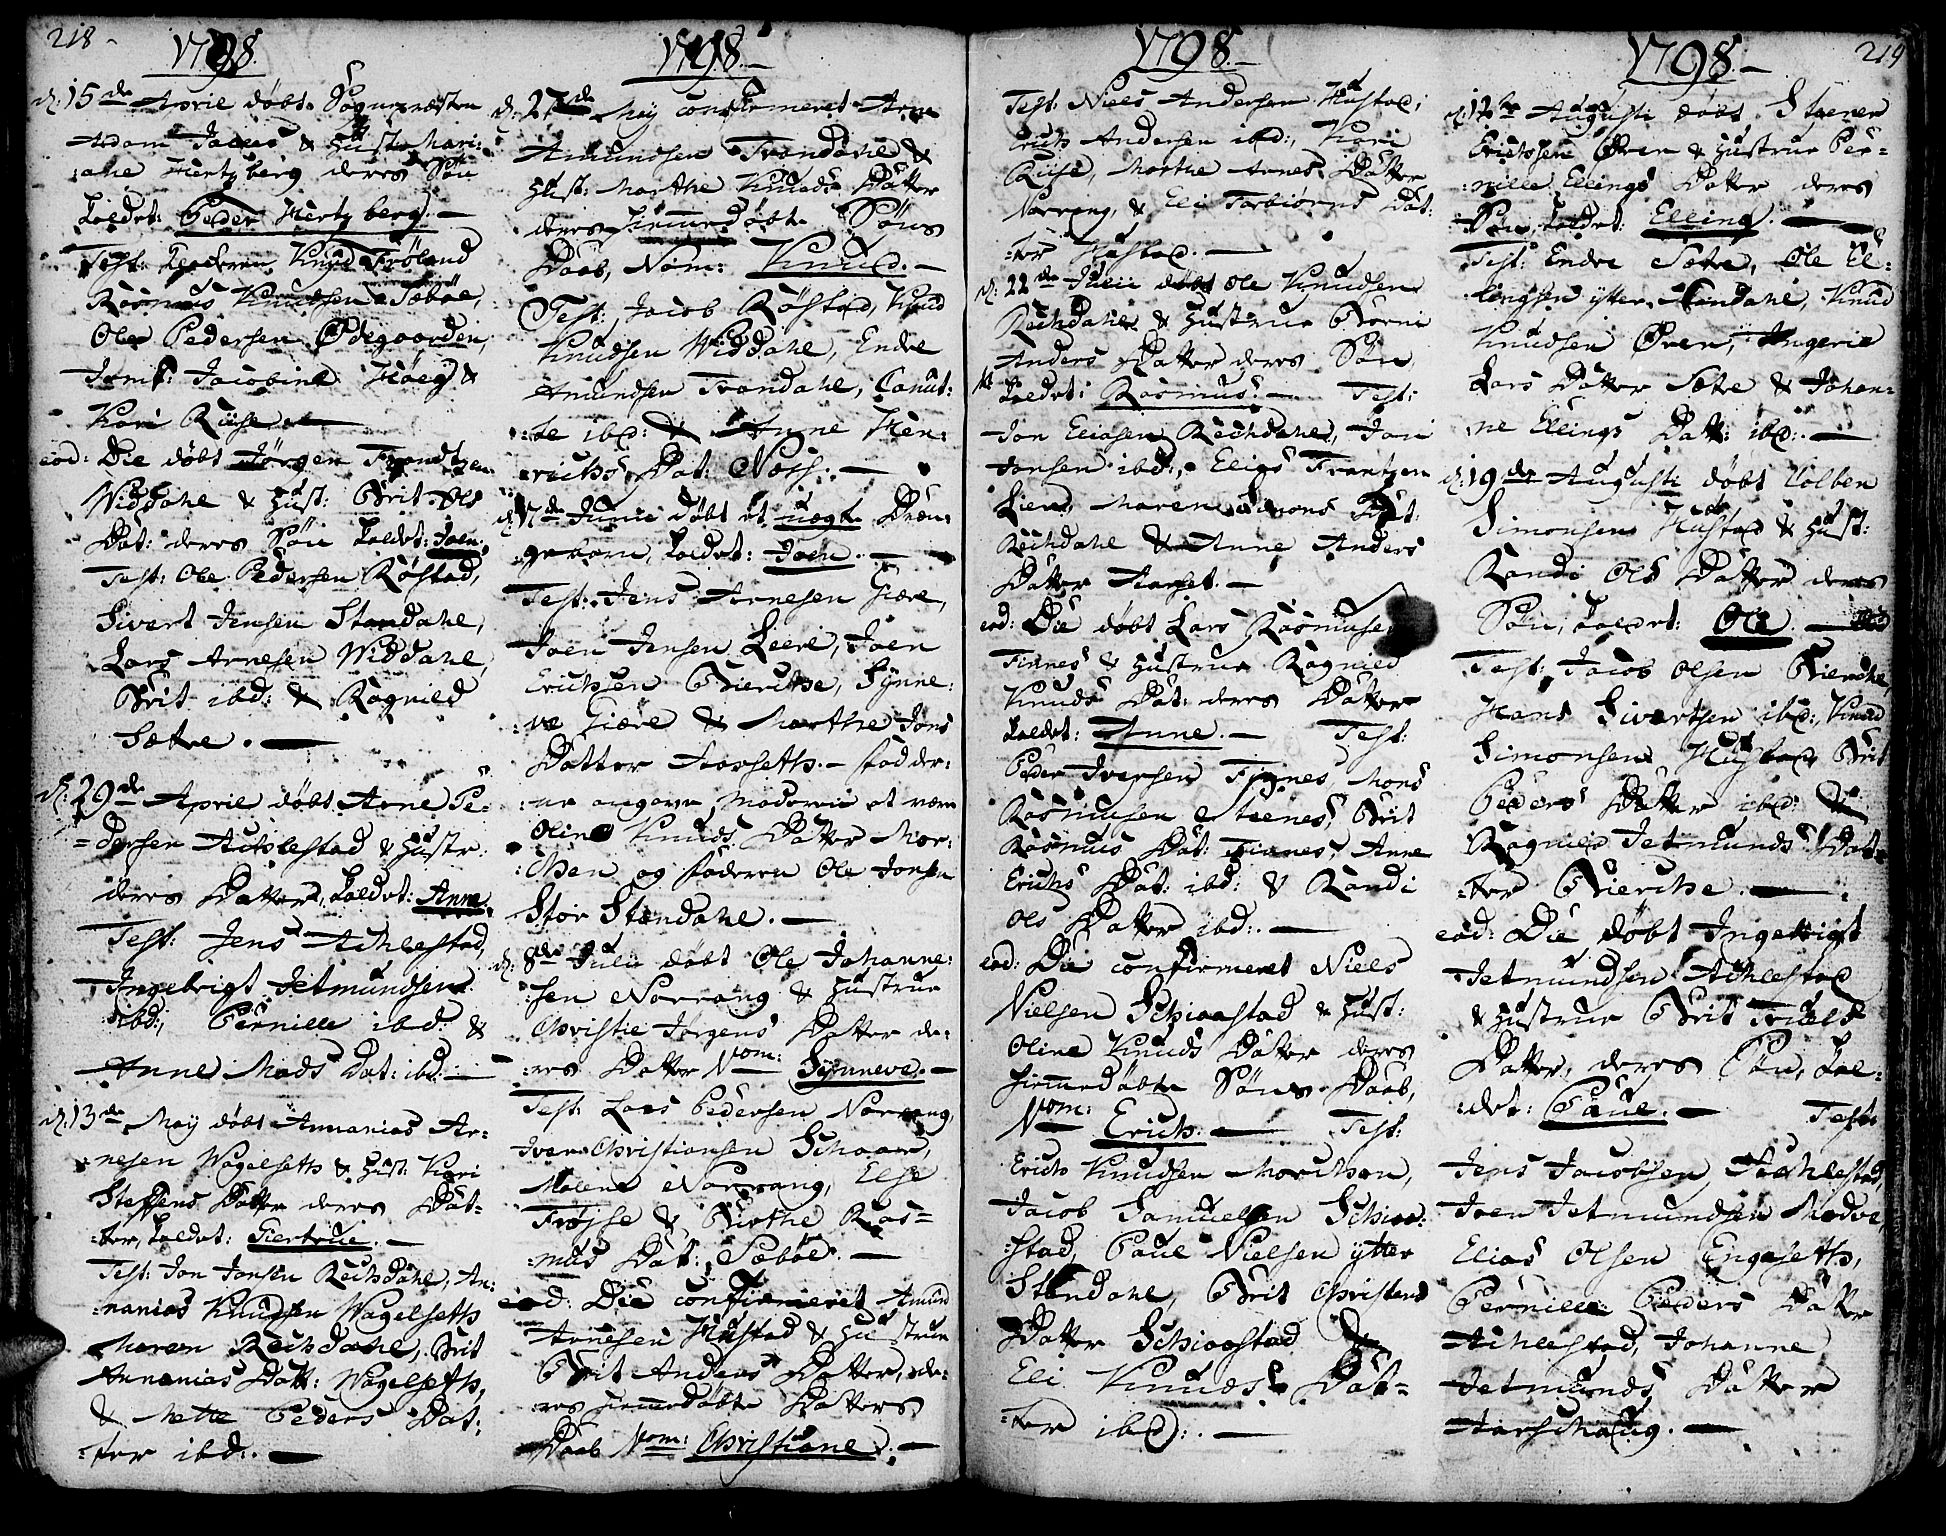 218
1798.
d: 15de April døbt Sognepræsten
Adam Jaeus & Hust: Mari:
:ane Hertzberg deres Søn
kaldet: Peder Hertzberg. —
Test: Knud Frøland
Rasmus Knudsen Sæbøe,
Ole Pedersen Ødegaarden,
Jomf: Jacobine Høeg &
Kari Riise. —
eod: Die døbt Jørgen Frandtzen
Widdahl & Hust: Brit Ols
Dat: deres Søn kaldet: Joen.
Test: Ole Pedersen Røstad,
Sivert Jensen Standahl,
Lars Arnesen Widdahl,
Brit ibd: & Ragnild
Sætre. —
d: 29de April døbt Arne Pe-
-dersen Achlestad & Hustr:
deres Datter, kaldet: Anne.
Test: Jens Achlestad,
Ingebrigt Jetmundsen
ibd:, Pernille ibd: &
Anne Mads Dat: ibd: —
d: 13de May døbt Annanias Ar-
-nesen Wagelseth & Hust: Kari
Steffens Datter deres Dat-
-ter, kaldet: Giertrue. —
Test: Jon Jonsen Rechdahl, An-
-nanias Knudsen Wagelseth
Maren Rechdahl, Brit
Annanias Datt: Wagelseth,
& Mette Peders Dat:
-ter ibd:. —
1798. —
d: 27de May confirmeret Arne
Amundsen Trandahl &
Hust: Marthe Knuds Datter
deres hiemmedøbte Søns
Daab, Nom: Knud. —
Test: Jacob Røstad, Knud
Knudsen Widdahl, Endre
Amundsen Trandahl, Canut:
:te ibd: & Anne Hen:
:richs Dat: Næss:. —
d: 17de Junii døbt et uægte Dren:
gebarn, kaldet: Joen. —
Test: Jens Arnesen Giære,
Joen Jensen Leere, Joen
Erichsen Bierche, Synne:
:ve Giære & Marthe Jons
Datter Aarseth. — Fadder:
:ne angave Moderen at være
Oline Knuds Datter Mor:
:chen og faderen Ole Jonsen
Stor Standahl. —
d: 8de Julii døbt Ole Johanne:
:sen Norrang & Hustrue
Christie Jørgens Datter de:
:res Datter Nom: Synneve. —
Test: Lars Pedersen Norrang,
Iver Christiansen Schaar,
Malene Norrang, Else
Frøjse & Birthe Ras=
:mus Dat: Sæbøe. —
eod: Die confirmeret Amund
Arnesen Hustad & Hustrue
Brit Anders Datter, de:
:res hiemmedøbte Datters
Daab Nom: Christiane. —
1798. —
Test: Niels Andersen Hustad,
Erich Andersen ibd:, Kari
Riise, Marthe Arnes Datter
Norrang, & Eli Torbiørns Dat:
:ter Hustad. —
d: 22de Julii døbt Ole Knudsen
Rechdahl & Hustrue Børni
Anders Datter deres Søn,
kaldet: Rasmus. — Test:
Jon Eliasen Rechdahl, Joni
Jonsen ibd:, Elias Frantzen
Lien, Maren Simons Dat:
Rechdahl & Anne Anders
Datter Aarset. —
eod: Die døbt Lars Rasmusen
Finnes & Hustrue Ragnild
Knuds Dat: deres Datter
kaldet: Anne. — Test:
Peder Iversen Finnes, Mons
Rasmusen Steenes, Brit
Rasmus Dat: Finnes, Anne
Erichs Dat: ibd: & Randi
Ols Datter ibd:. —
eod: Die confirmeret Niels
Nielsen Schioastad & Hust:
Oline Knuds Datter deres
hiemmedøbte Søns Daab,
Nom: Erich. — Test:
Erich Knudsen Morchen,
Jacob Samuelsen Schioa:
:stad, Paul Nielsen ytter
Standahl, Brit Christens
Datter Schioastad &
Eli Knuds Dat=
=ter ibd:. —
219
1798. —
d: 12te Augusti døbt Steener
Erichsen Øren & Hustrue Per=
:nille Ellings Datter deres
Søn, kaldet: Elling. —
Test: Endre Sætre, Ole El=
:lingsen ytter Standahl, Knud
Knudsen Øren, Ingerie
Lars Datter Sætre & Johan:
:ne Ellings Datt: ibd:. —
d: 19de Augusti døbt Colben
Simonsen Hustad & Hust:
Randi Ols Datter deres
Søn, kaldet: Ole. —
Test: Jacob Olsen Bierche,
Hans Sivertsen ibd:, Knud
Simonsen Hustad, Brit
Peders Datter ibd: &
Ragnild Jetmunds Dat=
:ter Bierche. —
eod: Die døbt Ingebrigt
Jetmundsen Achlestad
& Hustrue Brit Truels
Datter, deres Søn, kal=
:det: Paul. — Test:
Jens Jacobsen Achlestad,
Joen Jetmundsen Mødve,
Elias Olsen Engeseth,
Pernille Peders Datter
Achlestad, Johanne
Jetmunds Datter
Aarschaug. —